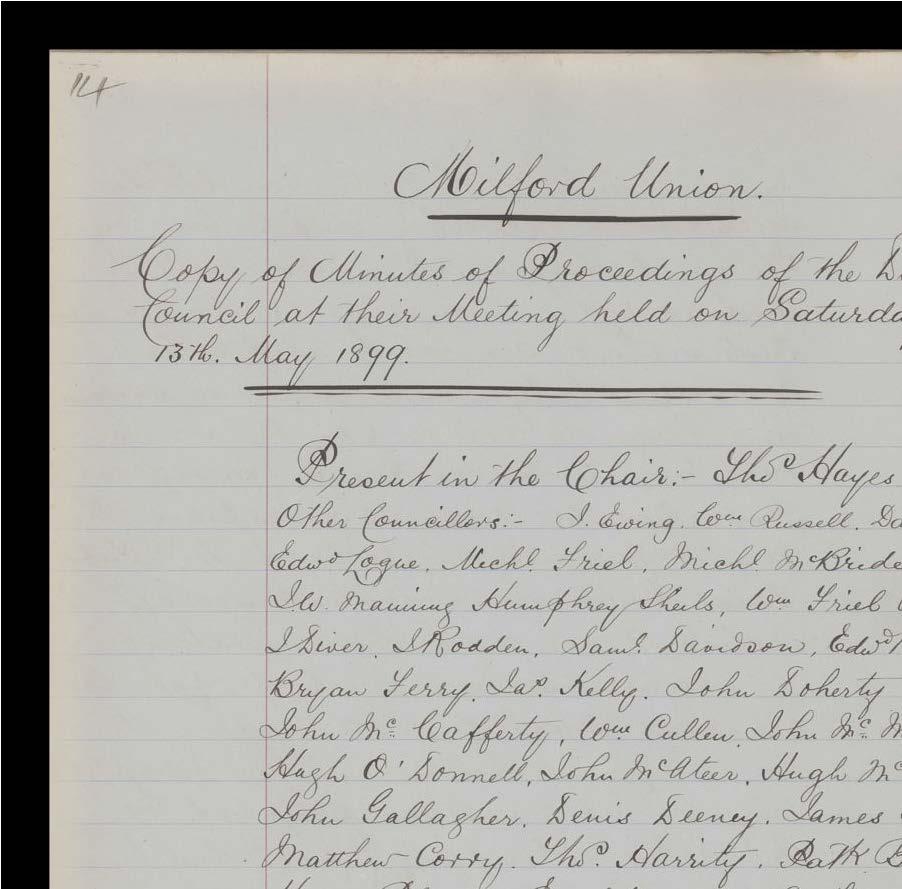 14
Milford Union.
Copy of Minutes of Proceedings of the
Council at their Meeting held on Saturda
13th. May 1899.
Present in the Chair:- Thos Hayes
Other Councillors:- J. Ewing. Wm Russell. Da
Edwd Logue. Michl. Friel. Michl McBride
J.W. Manning Humphrey Sheils, Wm Friel
J Diver. J Rodden. Saml. Davidson, Edwd
Bryan Ferry. Jas. Kelly. John Doherty
John Mc Cafferty, Wm Cullen. John Mc M
Hugh O'Donnell, John McAteer. Hugh Mc
John Gallagher. Denis Deeney. James
Matthew Corry. Thos. Harrity. Patk B